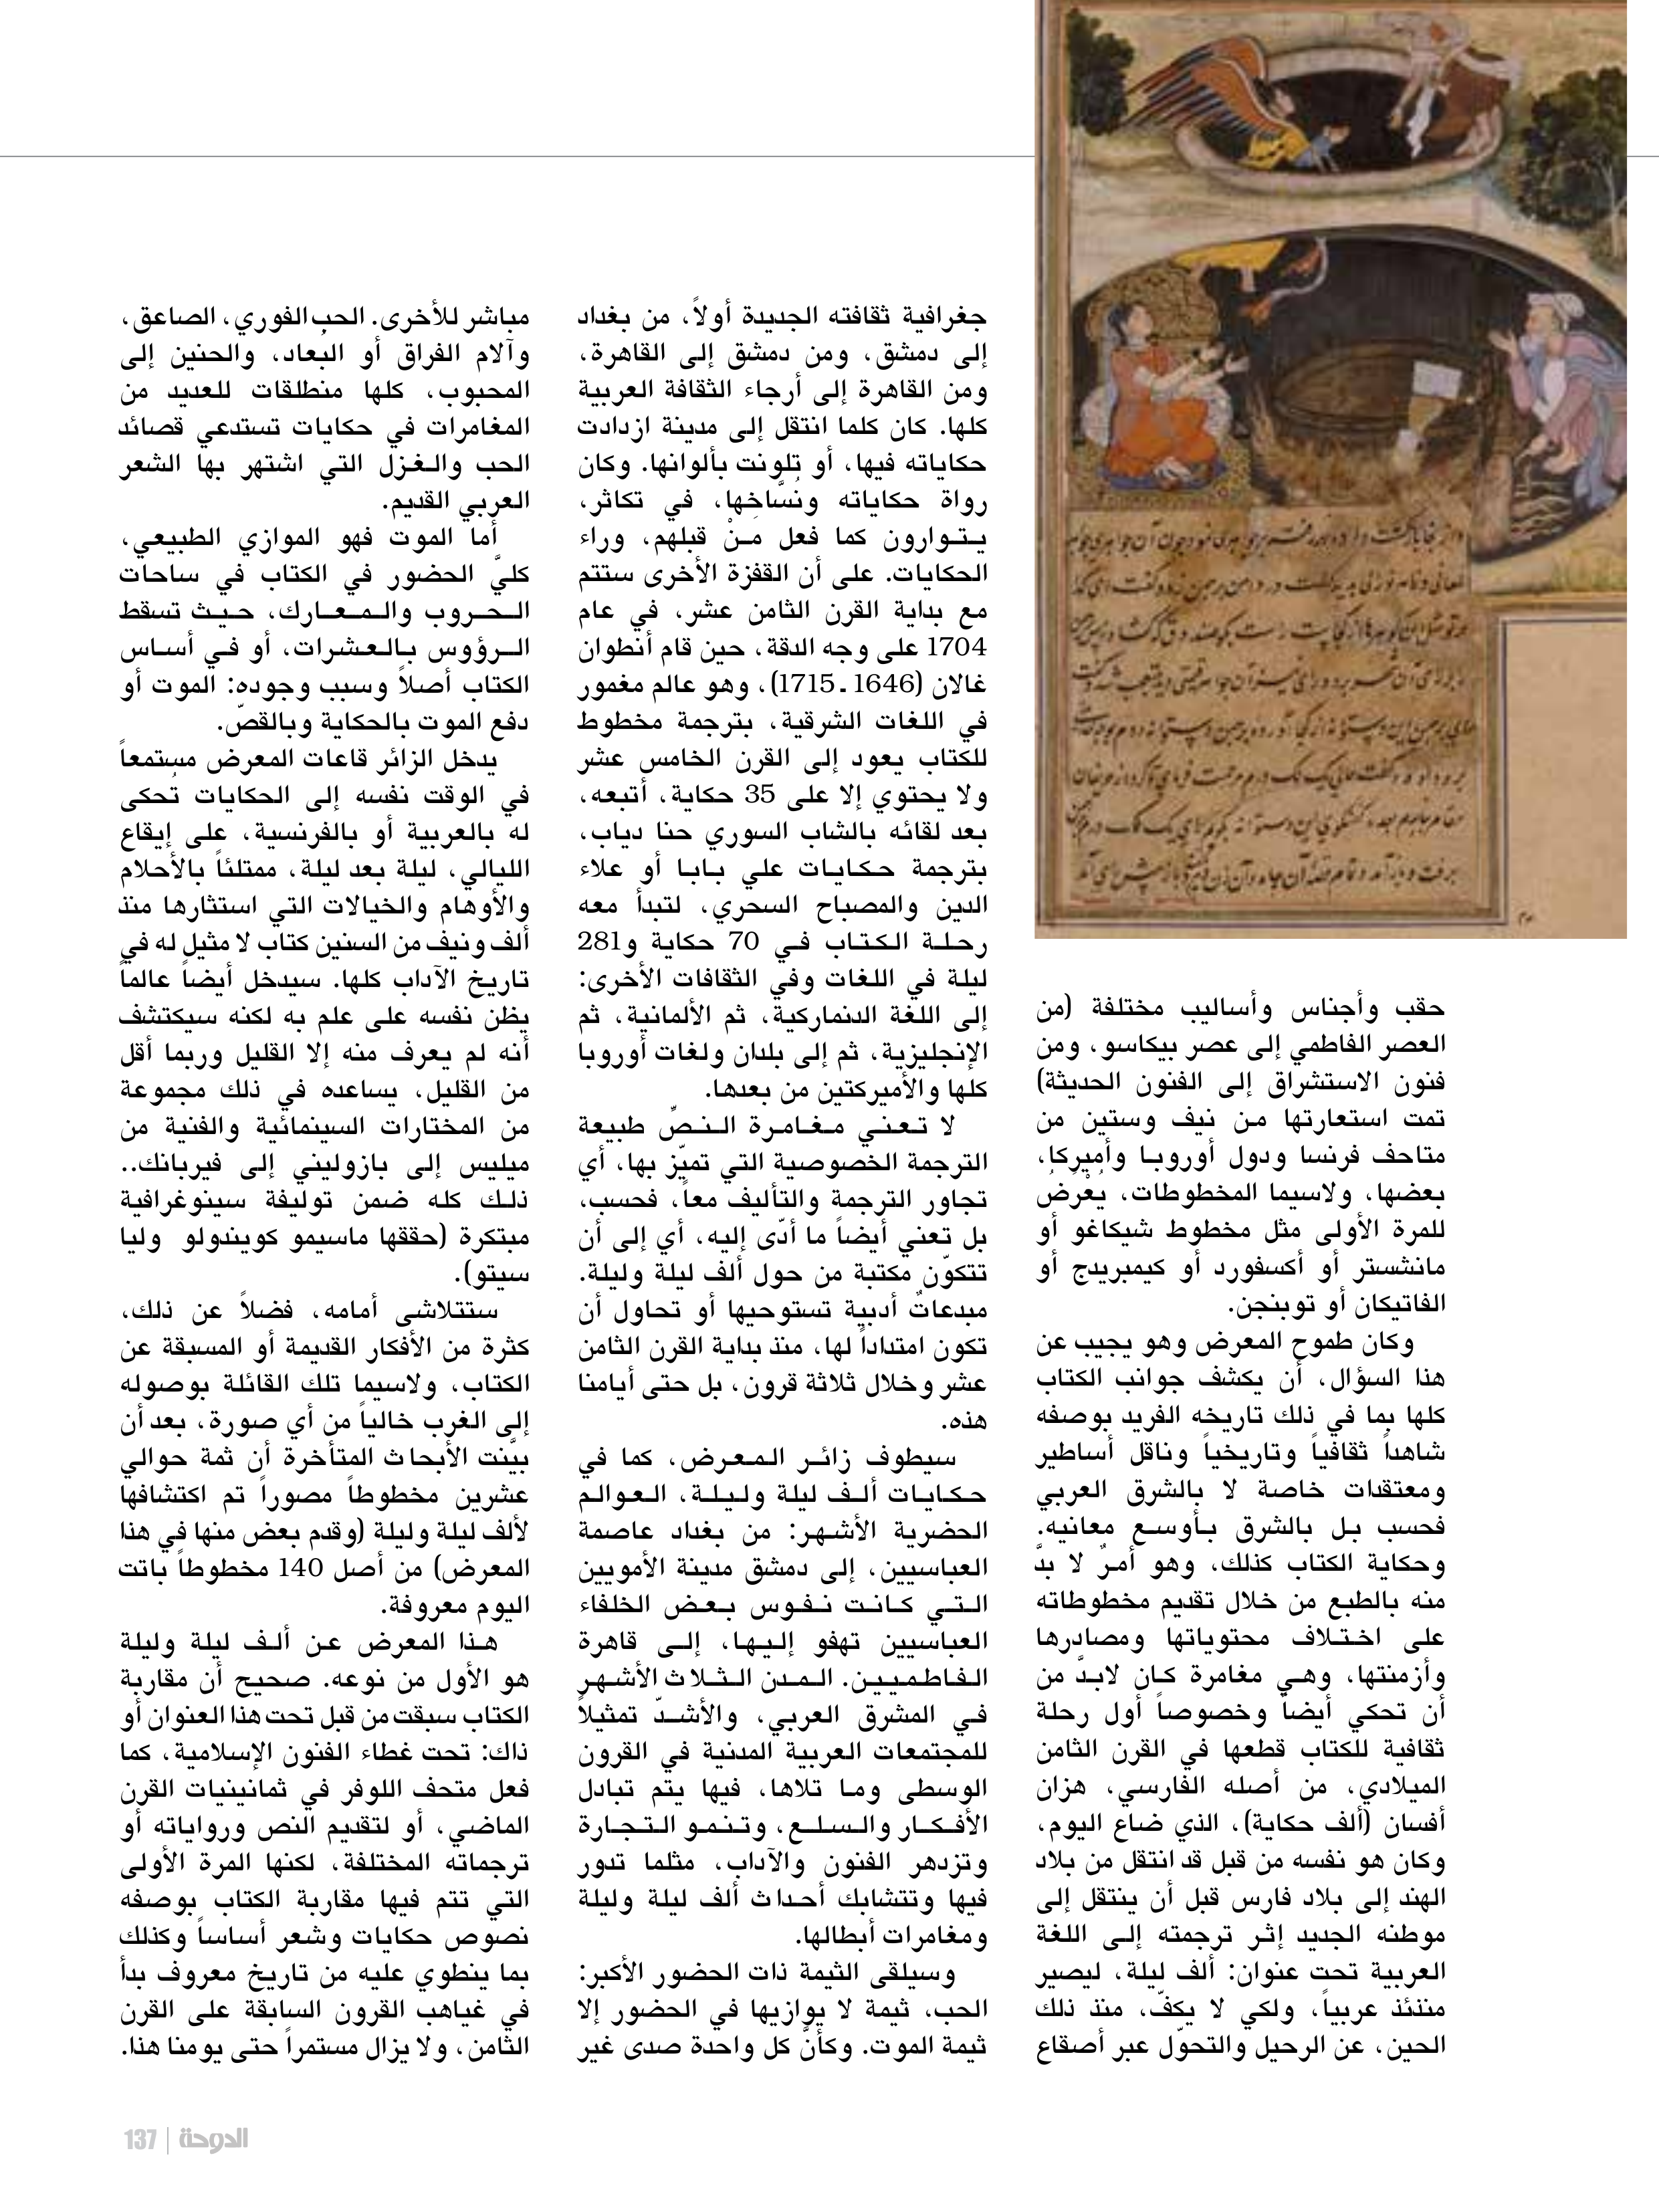 حقب وأجناس وأساليب مختلفة (من
العصر الفاطمي إلى عصر بيكاسو، ومن
فنون الاستشراق إلى الفنون الحديثة)
تمت استعارتها من نيف وستين من
متاحف فرنسا ودول أوروبا وأميركا،
بعضها، ولاسيما المخطوطات، يُعْرَضُ
للمرة الأولى مثل مخطوط شيكاغو أو
مانشستر أو أكسفورد أو كيمبريدج أو
الفاتيكان أو توبنجن.
وكان طموح المعرض وهو يجيب عن
هذا السؤال، أن يكشف جوانب الكتاب
كلها بما في ذلك تاريخه الفريد بوصفه
شاهداً ثقافياً وتاريخياً وناقل أساطير
ومعتقدات خاصة لا بالشرق العربي
فحسب بل بالشرق بأوسع معانيه.
وحكاية الكتاب كذلك، وهو أمرٌ لا بدَّ
منه بالطبع من خلال تقديم مخطوطاته
على اختلاف محتوياتها ومصادرها
وأزمنتها، وهي مغامرة كان لابدَّ من
أن تحكي أيضاً وخصوصاً أول رحلة
ثقافية للكتاب قطعها في القرن الثامن
الميلادي، من أصله الفارسي، هزان
أفسان (ألف حكاية)، الذي ضاع اليوم،
وكان هو نفسه من قبل قد انتقل من بلاد
الهند إلى بلاد فارس قبل أن ينتقل إلى
موطنه الجديد إثر ترجمته إلى اللغة
العربية تحت عنوان: ألف ليلة، ليصير
منذئذ عربياً، ولكي لا يكفّ، منذ ذلك
الحين، عن الرحيل والتحوّل عبر أصقاع
جغرافية ثقافته الجديدة أولاً، من بغداد
إلى دمشق، ومن دمشق إلى القاهرة،
ومن القاهرة إلى أرجاء الثقافة العربية
كلها. كان كلما انتقل إلى مدينة ازدادت
حكاياته فيها، أو تلونت بألوانها. وكان
رواة حكاياته ونُسَّاخها، في تكاثر،
يتوارون كما فعل منْ قبلهم، وراء
الحكايات. على أن القفزة الأخرى ستتم
مع بداية القرن الثامن عشر، في عام
1704 على وجه الدقة، حين قام أنطوان
غالان (1646 ـ 1715)، وهو عالم مغمور
في اللغات الشرقية، بترجمة مخطوط
للكتاب يعود إلى القرن الخامس عشر
ولا يحتوي إلا على 35 حكاية، أتبعه،
بعد لقائه بالشاب السوري حنا دياب،
بترجمة حكايات علي بابا أو علاء
الدين والمصباح السحري، لتبدأ معه
رحلة الكتاب في 70 حكاية و281
ليلة في اللغات وفي الثقافات الأخرى:
إلى اللغة الدنماركية، ثم الألمانية، ثم
الإنجليزية، ثم إلى بلدان ولغات أوروبا
كلها والأميركتين من بعدها.
لا تعني مغامرة النصِّ طبيعة
الترجمة الخصوصية التي تميّز بها، أي
تجاور الترجمة والتأليف معاً، فحسب،
بل تعني أيضاً ما أدّى إليه، أي إلى أن
تتكوّن مكتبة من حول ألف ليلة وليلة.
مبدعاتٌ أدبية تستوحيها أو تحاول أن
تكون امتداداً لها، منذ بداية القرن الثامن
عشر وخلال ثلاثة قرون، بل حتى أيامنا
هذه.
سيطوف زائر المعرض، كما في
حكايات ألف ليلة وليلة، العوالم
الحضرية الأشهر: من بغداد عاصمة
العباسيين، إلى دمشق مدينة الأمويين
التي كانت نفوس بعض الخلفاء
العباسيين تهفو إليها، إلى قاهرة
الفاطميين. المدن الثلاث الأشهر
في المشرق العربي، والأشدّ تمثيلاً
للمجتمعات العربية المدنية في القرون
الوسطى وما تلاها، فيها يتم تبادل
الأفكار والسلع، وتنمو التجارة
وتزدهر الفنون والآداب، مثلما تدور
فيها وتتشابك أحداث ألف ليلة وليلة
ومغامرات أبطالها.
وسيلقى الثيمة ذات الحضور الأكبر:
الحب، ثيمة لا يوازيها في الحضور إلا
ثيمة الموت. وكأنَّ كل واحدة صدى غير
مباشر للأخرى. الحب الفوري، الصاعق،
وآلام الفراق أو البعاد، والحنين إلى
المحبوب، كلها منطلقات للعديد من
المغامرات في حكايات تستدعي قصائد
الحب والغزل التي اشتهر بها الشعر
العربي القديم.
أما الموت فهو الموازي الطبيعي،
كليَّ الحضور في الكتاب في ساحات
الحروب والمعارك، حيث تسقط
الرؤوس بالعشرات، أو في أساس
الكتاب أصلاً وسبب وجوده: الموت أو
دفع الموت بالحكاية وبالقصّ.
يدخل الزائر قاعات المعرض مستمعاً
في الوقت نفسه إلى الحكايات تُحكى
له بالعربية أو بالفرنسية، على إيقاع
الليالي، ليلة بعد ليلة، ممتلئاً بالأحلام
والأوهام والخيالات التي استثارها منذ
ألف ونيف من السنين كتاب لا مثيل له في
تاريخ الآداب كلها. سيدخل أيضاً عالماً
يظن نفسه على علم به لكنه سيكتشف
أنه لم يعرف منه إلا القليل وربما أقل
من القليل، يساعده في ذلك مجموعة
من المختارات السينمائية والفنية من
ميليس إلى بازوليني إلى فيربانك..
ذلك كله ضمن توليفة سينوغرافية
مبتكرة (حققها ماسيمو كويندولو وليا
سيتو).
ستتلاشى أمامه، فضلاً عن ذلك،
كثرة من الأفكار القديمة أو المسبقة عن
الكتاب، ولاسيما تلك القائلة بوصوله
إلى الغرب خالياً من أي صورة، بعد أن
بيَّنت الأبحاث المتأخرة أن ثمة حوالي
عشرين مخطوطاً مصوراً تم اكتشافها
لألف ليلة وليلة (وقدم بعض منها في هذا
المعرض) من أصل 140 مخطوطاً باتت
اليوم معروفة.
هذا المعرض عن ألف ليلة وليلة
هو الأول من نوعه. صحيح أن مقاربة
الكتاب سبقت من قبل تحت هذا العنوان أو
ذاك: تحت غطاء الفنون الإسلامية، كما
فعل متحف اللوفر في ثمانينيات القرن
الماضي، أو لتقديم النص ورواياته أو
ترجماته المختلفة، لكنها المرة الأولى
التي تتم فيها مقاربة الكتاب بوصفه
نصوص حكايات وشعر أساساً وكذلك
بما ينطوي عليه من تاريخ معروف بدأ
في غياهب القرون السابقة على القرن
الثامن، ولا يزال مستمراً حتى يومنا هذا.
الدوحة | 137